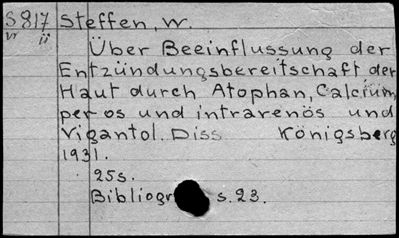 S 817 Steffen, W.
VI ii
Über Beeinflussung der
Entzündungsbereitschaft der
Haut durch Atophan, Calcium,
per os und intravenös und
Vigantol. Diss Königsberg
1931.
25s.
Bibliogr s. 23.